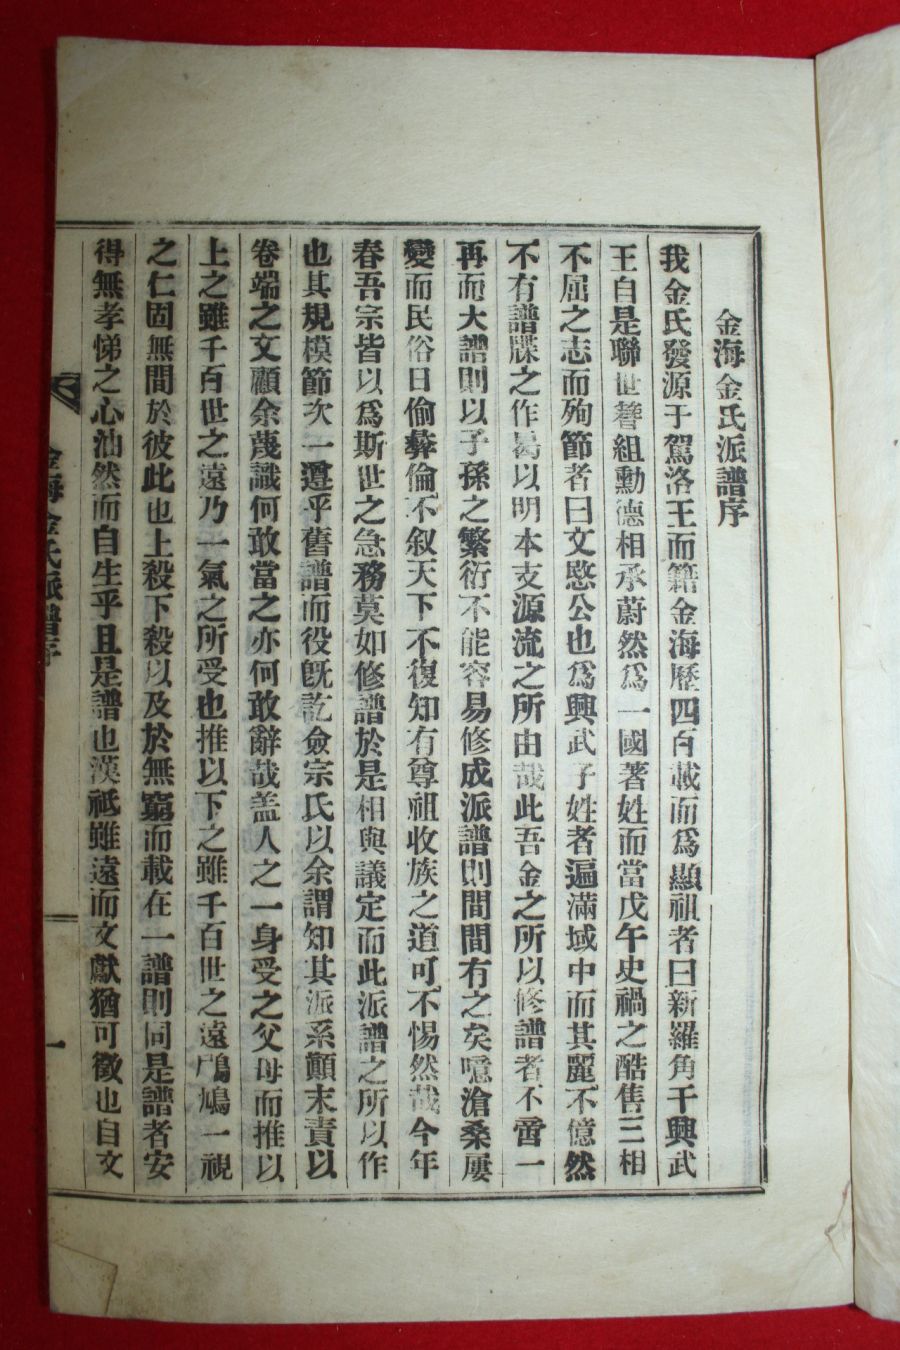 金海金氏派譜序
我金氏發源于駕洛王而籍金海歷四百載而爲顯祖者曰新羅角干興武
王自是聯世簪組勳德相承蔚然爲一國著姓而當戊午史禍之酷售三相
不屈之志而殉節者曰文愍公也爲興武子姓者遍滿域中而其麗不億然
不有譜牒之作曷以明本支源流之所由哉此吾金之所以修譜者不啻一
再而大譜則以子孫之繁衍不能容易修成派譜則間間有之矣噫滄桑屢
變而民俗日偷彝倫不叙天下不復知有尊祖收族之道可不惕然哉今年
春吾宗皆以爲斯世之急務莫如修譜於是相與議定而此派譜之所以作
也其規模節次一遵乎舊譜而役旣訖僉宗氏以余謂知其派系顚末責以
卷端之文顧余蔑識何敢當之亦何敢辭哉盖人之一身受之父母而推以
上之雖千百世之遠乃一氣之所受也推以下之雖千百世之遠鳲鳩一視
之仁固無間於彼此也上殺下殺以及於無窮而載在一譜則同是譜者安
得無孝悌之心油然而自生乎且是譜也漢祗雖遠而文獻猶可徵也自文
金海金氏派譜序
一